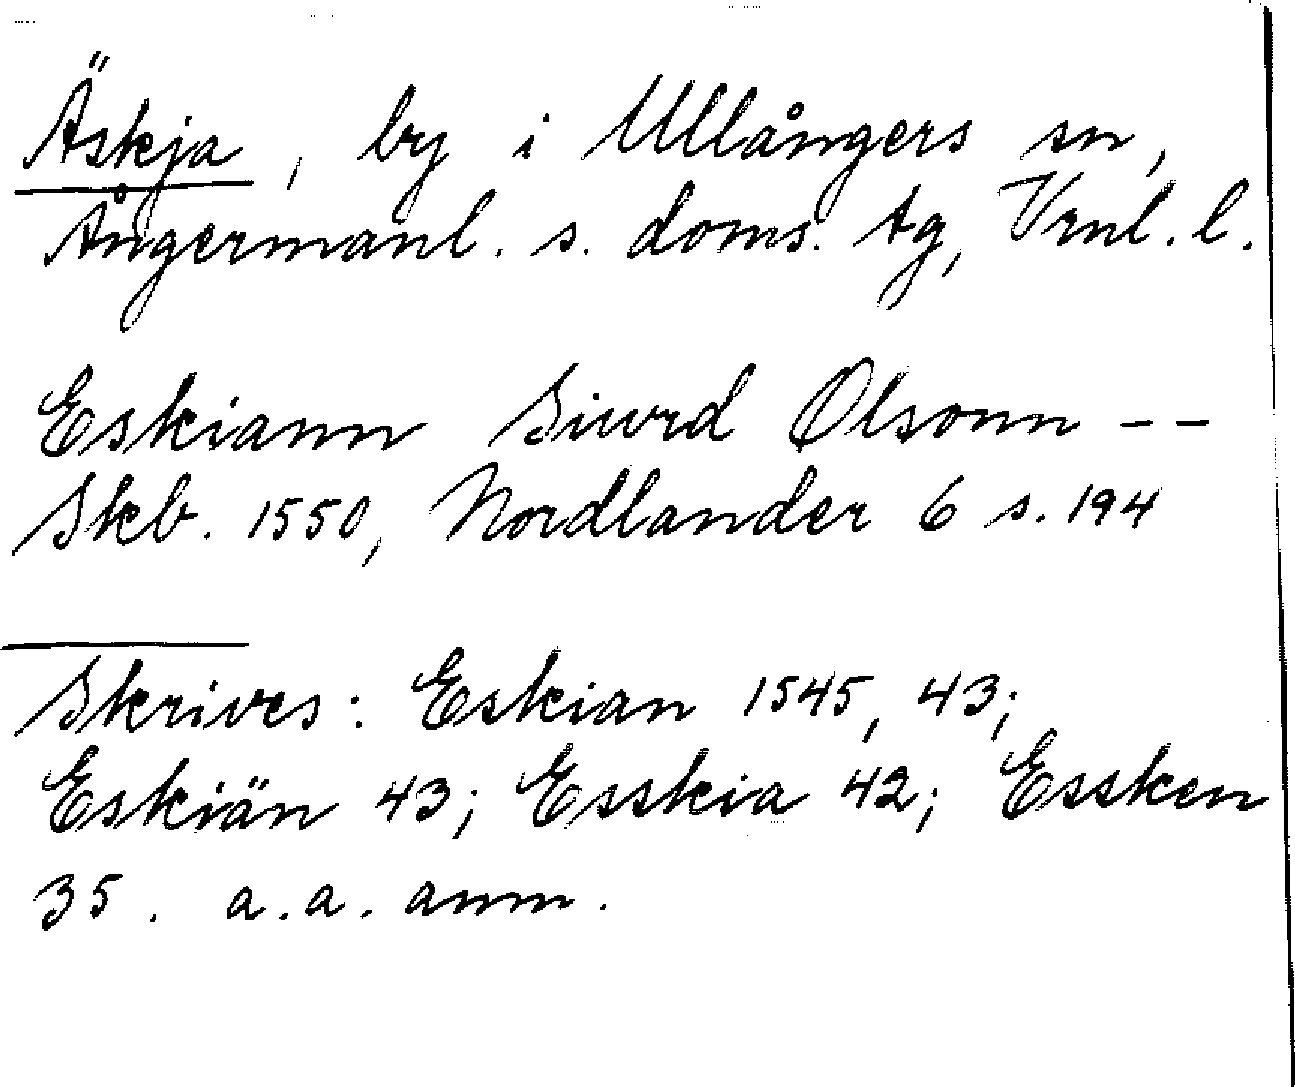 Äskja, by i Ullångers sn,
Ångermanl. s. doms. tg, Vrnl. l.
Eskiann Siurd Olsonn --
Skb. 1550, Nordlander 6 s. 194
Skrives: Eskian 1545, 43;
Eskiän 43; Esskia 42; Essken
35. a. a. anm.